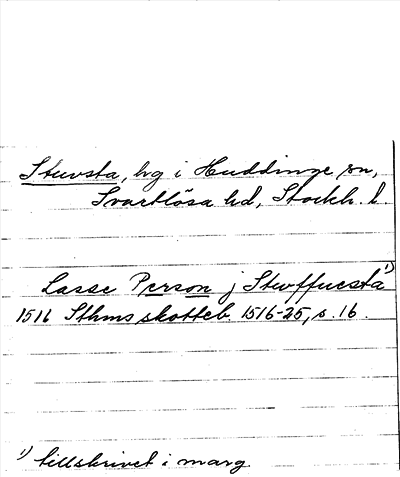 Stuvsta, hg i Huddinge sn,
Svartlösa hd, Stockh. l.
Lasse Person j Stuffuesta 1)
1516 Sthms skotteb. 1516-25, s. 16.
1) tillskrivet i marg